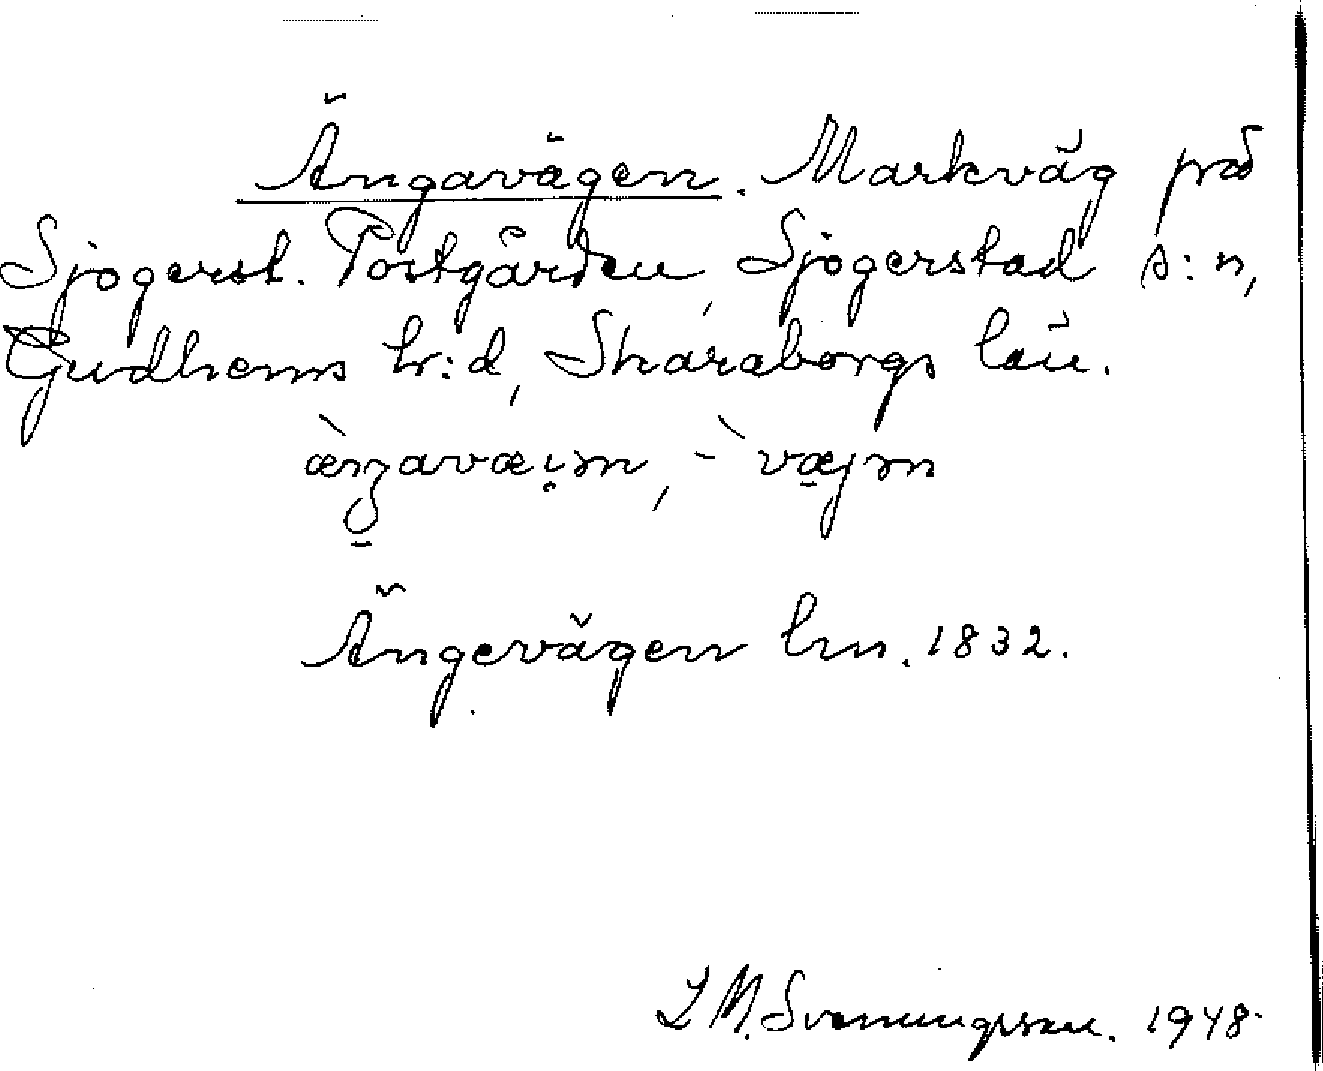 Ängavägen. Markväg på
Sjögerst. Postgården, Sjögerstad s:n,
Gudhems h:d, Skaraborgs län.
Ängevägen lm. 1832.
L M. Svenungsson. 1948